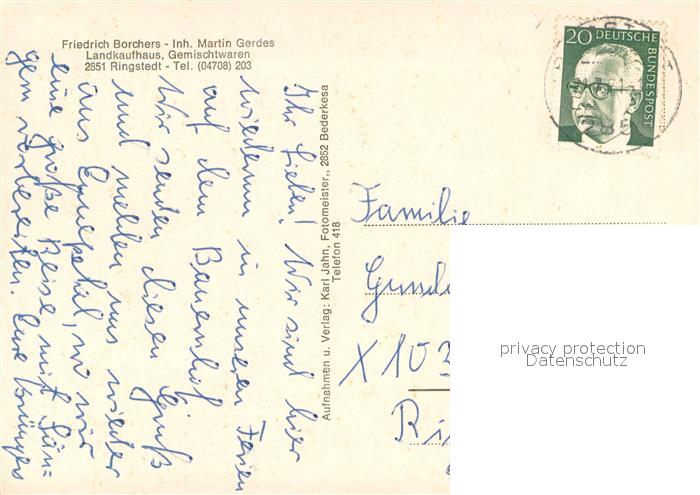 Friedrich Borchers - Inh. Martin Gerdes
Landkaufhaus, Gemischtwaren
2851 Ringstedt - Tel. (04708) 203
20 DEUTSCHE
BUNDESPOST
Ihr Lieben! Wir sind hier
wiederum in unseren Ferien
auf dem Bauernhof
Wir senden diesen Gruß
und melden uns wieder
aus Ennepetal, wo wir
eine große Reise mit
gern vorbereiten. Eure
Aufnahmen u. Verlag: Karl Jahn, Fotomeister,, 2852 Bederkesa
Telefon 418
Familie
X 103
privacy protection
Datenschutz